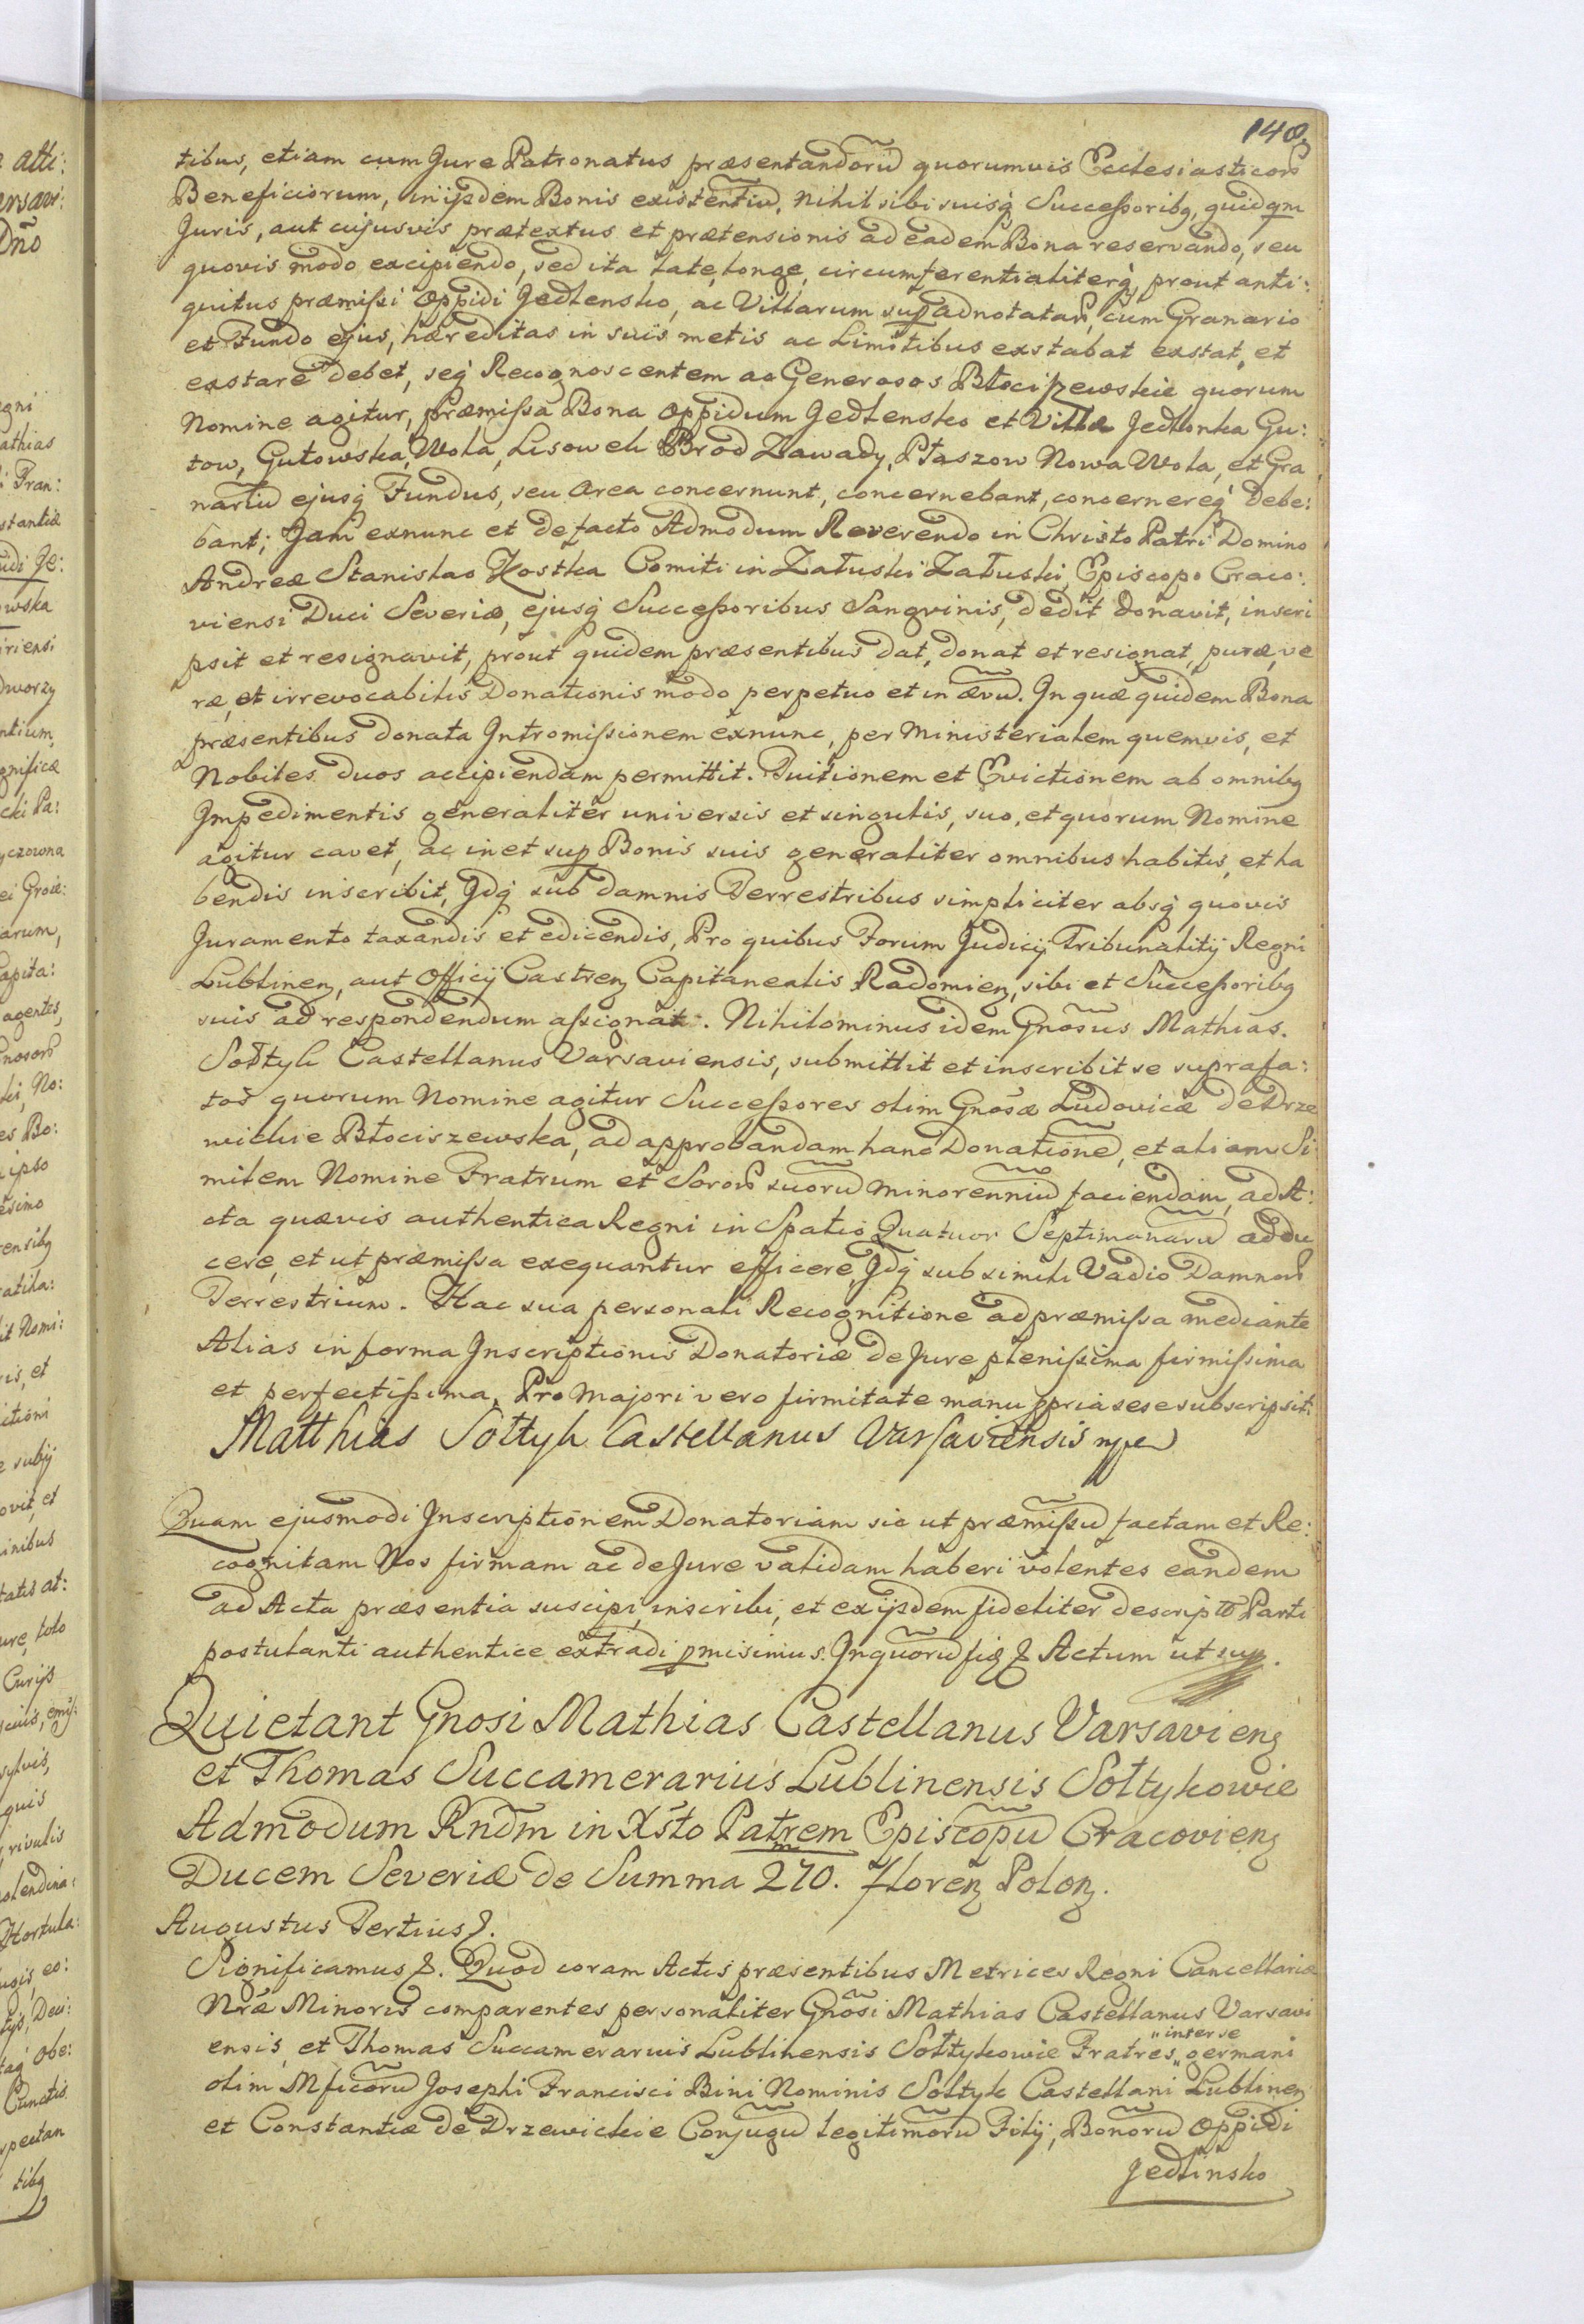 148
tibus, etiam cum Jure Patronatus præsentandorũ quorumvis Ecclesiasticorũ
Beneficiorum, in ijsdem Bonis existentiũ. Nihil sibi suisq́ Successoribq, quidqm
Juris, aut cujusvis prætextus et prætensionis ad eadem Bona reservando, seu
quovis modo excipiendo, sed ita late, longe, circumferentialiterq́, prout anti:
quitus præmissi Oppidi Jedlensko, ac Villarum sup adnotatarũ, cum Granario
et Fundo ejus, hæreditas in suis metis ac Limitibus exstabat exstat, et
exstare debet, seq́ Recognoscentem ac Generosos Błociszewskie quorum
Nomine agitur, præmissa Bona Oppidum Jedlensko et Villæ Jedlonka Gu:
tow, Gutowska, Wola, Lisowek Brod Zawady, Płaszow Nowa Wola, et Gra
nariũ ejusq́ Fundus, seu Area concernunt, concernebant, concernereq́ Debe:
bant; Jam exnunc et de facto Admodum Reverendo in Christo Patri Domino
Andreæ Stanislao Kostka Comiti in Załuski Załuski, Episcopo Craco:
viensi Duci Severiæ, ejusq́ Successoribus Sangvinis, dedit donavit, inscri
psit et resignavit, prout quidem præsentibus dat, donat et resignat, puræ, ve
ræ, et irrevocabilis Donationis modo perpetuo et in ævũ. In quæ quidem Bona
præsentibus donata Intromissionem exnunc, per Ministerialem quemvis, et
Nobiles duos accipiendam permittit. Tuitionem et Evictionem ab omnibq
Impedimentis generaliter universis et singulis, suo, et quorum Nomine
agitur cavet, ac in et sup Bonis suis generaliter omnibus habitis, et ha
bendis inscribit, Idq́ sub damnis Terrestribus simpliciter absq́ quovis
Juramento taxandis et edicendis, Pro quibus Forum Judicij Tribunalitij Regni
Lublinen, aut Officij Castren Capitanealis Radomien, sibi et Successoribq
suis ad respondendum assignat. Nihilominus idem Gnosus Mathias.
Sołtyk Castellanus Varsaviensis, submittit et inscribit se suprafa:
tos quorum Nomine agitur Successores olim Gnosæ Ludovicæ de Drze
wickie Błociszewska, ad approbandam hanc Donationẽ, et aliam Si
milem Nomine Fratrum et Sororũ suorũ minorenniũ faciendam, ad A:
cta quævis authentica Regni in Spatio Quatuor Septimanarũ addu
cere, et ut præmissa exequantur efficere, Idq́ sub simili Vadio Damnorũ
Terrestrium. Hac sua personali Recognitione ad præmissa mediante
Alias in forma Inscriptionis Donatoriæ de Jure plenissima firmissima
et perfectissima. Pro Majori vero firmitate manu ppria sese subscripsit.
Matthias Sołtyk Castellanus Varsaviensis mp
Quam ejusmodi Inscriptionem Donatoriam sic ut præmissũ factam et Re:
cognitam Nos firmam ac de Jure validam haberi volentes eandem
ad Acta præsentia suscipi, inscribi, et ex ijsdem fideliter descriptã Parti
postulanti authentice extradi pmisimus. In quorũ fiq & Actum ut sup.
Quietant Gnosi Mathias Castellanus Varsavien
et Thomas Succamerarius Lublinensis Sołtykowie
Admodum Rndm in Xsto Patrem Episcopũ Cracovien
Ducem Severiæ de Summa 270.m Floren Polon.
Augustus Tertius &.
Significamus &. Quod coram Actis præsentibus Metrices Regni Cancellariæ
Nræ Minoris comparentes personaliter Gnosi Mathias Castellanus Varsavi
ensis, et Thomas Succamerarius Lublinensis Sołtykowie Fratres "inter se" germani
olim Mficorũ Josephi Francisci Bini Nominis Sołtyk Castellani Lublinen
et Constantiæ de Drzewickie Conjugũ legitimorũ Filij, Bonorũ Oppidi
Jedlinsko